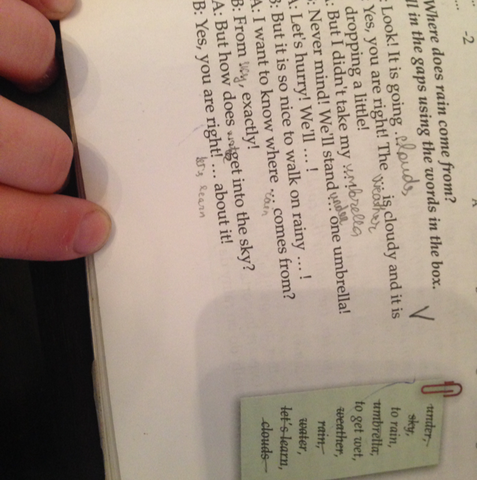 -2
Where does rain come from?
ll in the gaps using the words in the box.
: Look! It is going ... clouds
: Yes, you are right! The weather is cloudy and it is
dropping a little!
: But I didn't take my umbrella
: Never mind! We'll stand under one umbrella!
A: Let's hurry! We'll ... !
B: But it is so nice to walk on rainy ... !
A: I want to know where rain comes from?
B: From sky, exactly!
A: But how does get into the sky?
B: Yes, you are right! ... about it!
let's learn
under,
sky,
to rain,
umbrella,
to get wet,
weather,
rain,
water,
let's learn,
clouds